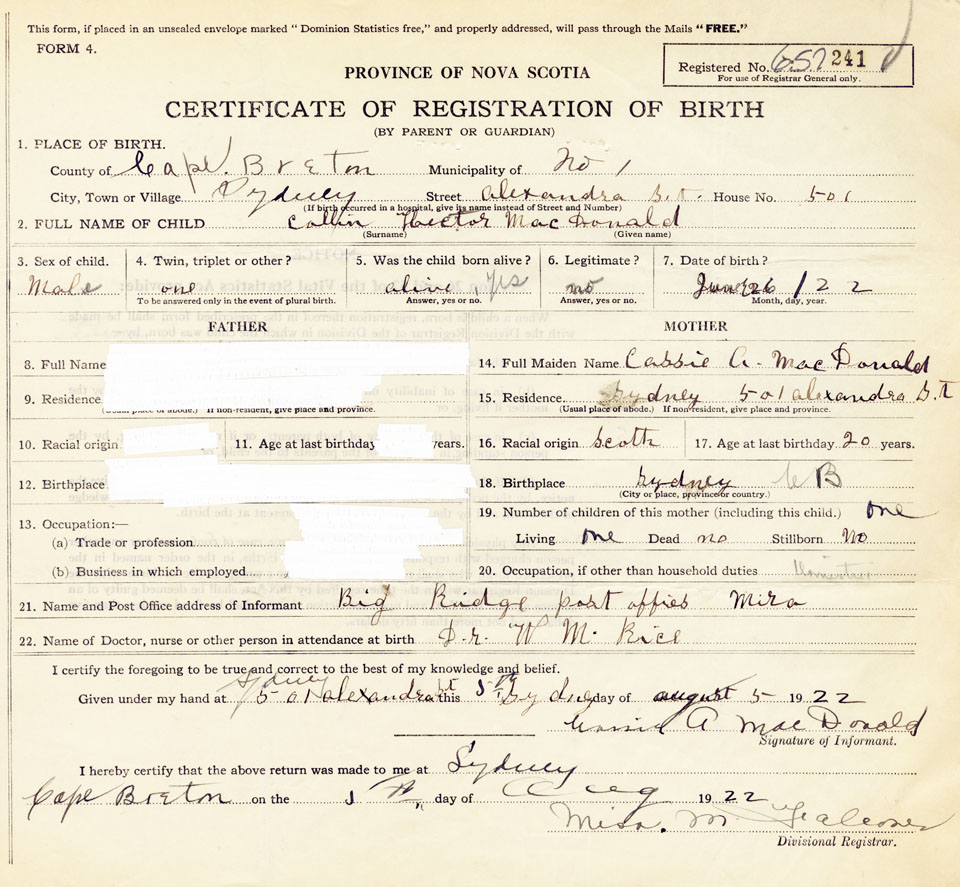 This form, if placed in an unsealed envelope marked “ Dominion Statistics free,” and properly addressed, will pass through the Mails “FREE.”
FORM 4.
Registered No. 657 241
For use of Registrar General only.
PROVINCE OF NOVA SCOTIA
CERTIFICATE OF REGISTRATION OF BIRTH
(BY PARENT OR GUARDIAN)
1. PLACE OF BIRTH.
County of Cape Breton Municipality of No 1
City, Town or Village Sydney Street alexandra S.t. House No. 501
(If birth occurred in a hospital, give its name instead of Street and Number)
2. FULL NAME OF CHILD Collin Hector MacDonald
(Surname) (Given name)
3. Sex of child. 4. Twin, triplet or other? 5. Was the child born alive? 6. Legitimate? 7. Date of birth?
Male one alive yes no June 26 / 22
To be answered only in the event of plural birth. Answer, yes or no. Answer, yes or no. Month, day, year.
FATHER MOTHER
8. Full Name 14. Full Maiden Name Cassie A. MacDonald
9. Residence 15. Residence. Sydney 501 alexandra S.t
(Usual place of abode.) If non-resident, give place and province. (Usual place of abode.) If non-resident, give place and province.
10. Racial origin 11. Age at last birthday years. 16. Racial origin Scoth 17. Age at last birthday 20 years.
12. Birthplace 18. Birthplace Sydney C B
(City or place, province or country.)
13. Occupation:— 19. Number of children of this mother (including this child.) one
(a) Trade or profession Living one Dead no Stillborn No
(b) Business in which employed 20. Occupation, if other than household duties
21. Name and Post Office address of Informant Big Ridge post offies Mira
22. Name of Doctor, nurse or other person in attendance at birth D.r. W M. Rice
I certify the foregoing to be true and correct to the best of my knowledge and belief.
Sydney
Given under my hand at 501 alexandra st this 5th Sydney day of august 5 1922
A MacDonald
Signature of Informant.
I hereby certify that the above return was made to me at Sydney
Cape Breton on the 5th day of Aug 1922
Miss. M Falconer
Divisional Registrar.